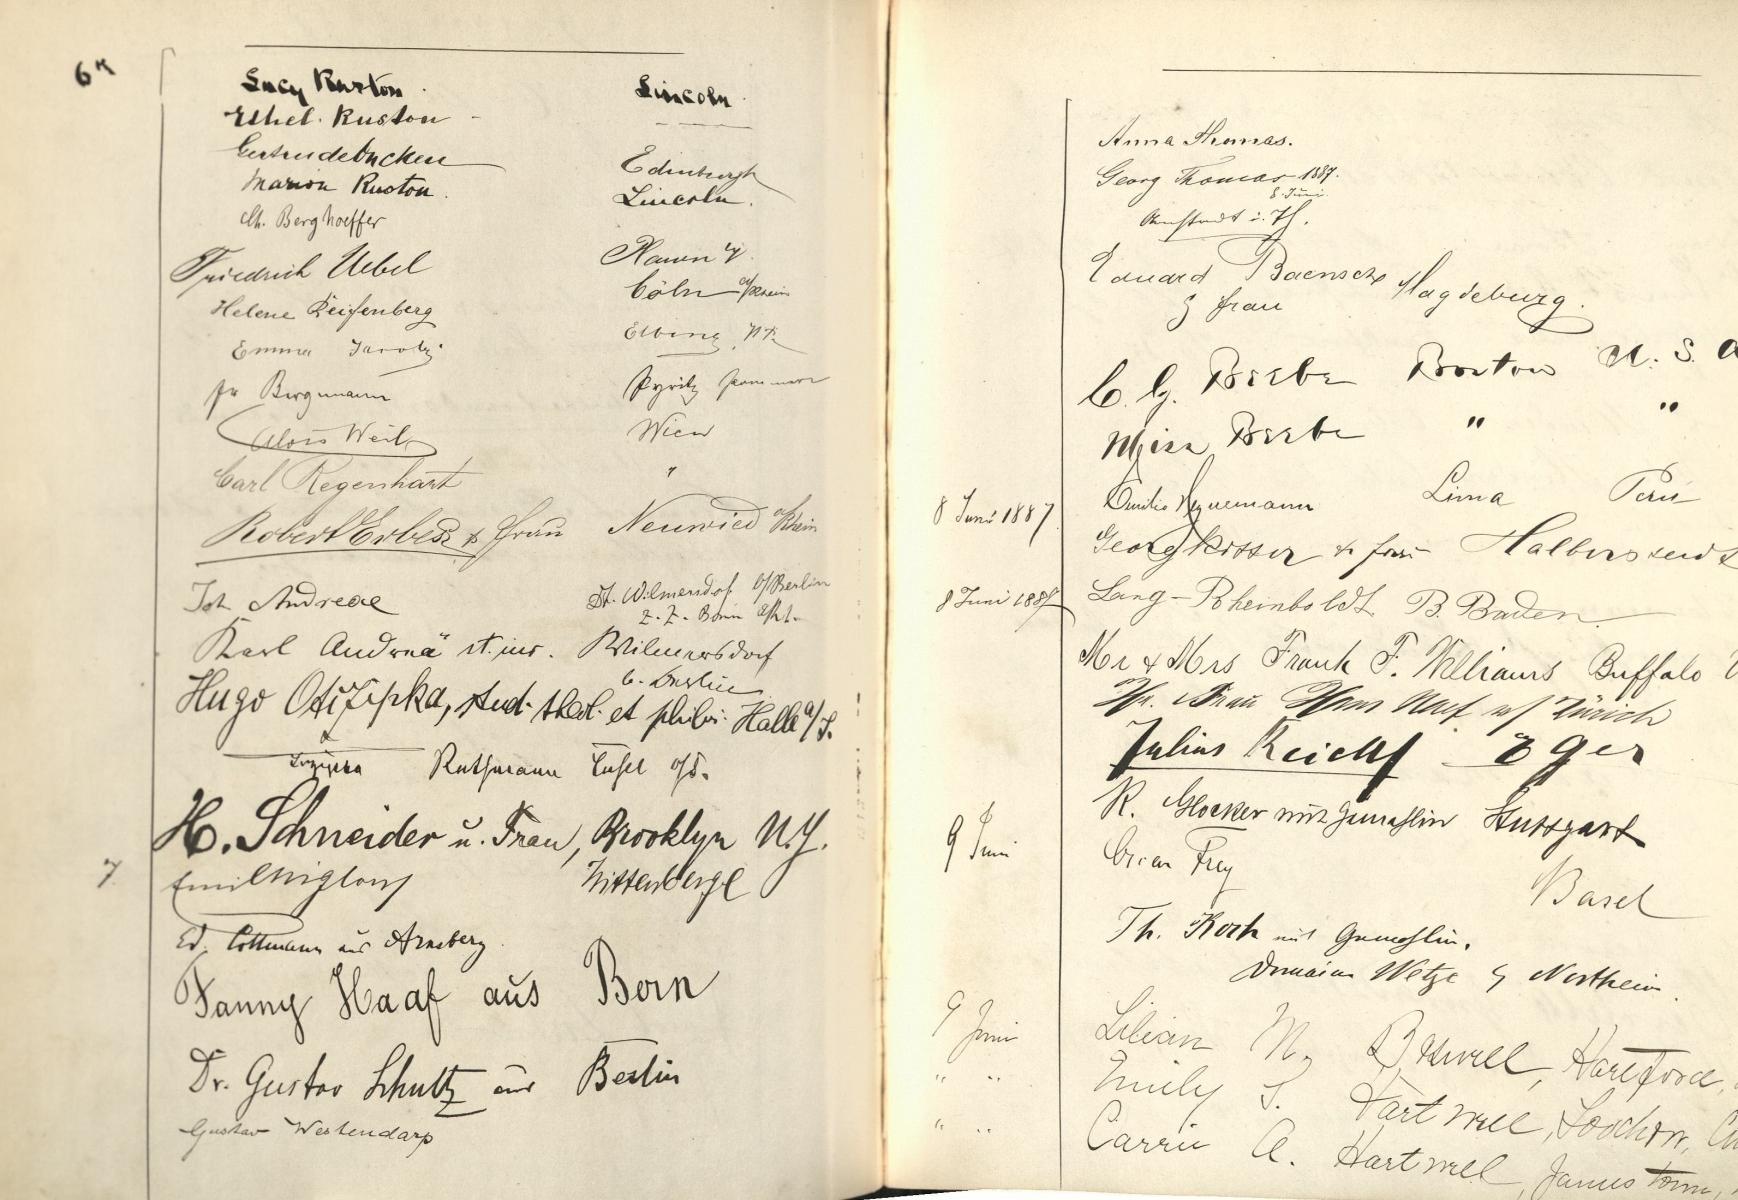 6th Lucy Ruston Lincoln
Ethel Ruston
Gertrude Edinburgh
Marion Ruston. Lincoln.
Ch. Berghoeffer
Friedrich Uebel Plauen
Helene Reifenberg Cöln a/Rhein
Emma Elbing
Bergmann Pyritz Pommern
Alois Weil Wien
Carl Regenhart "
Robert Erbes & Frau Neuwied a/Rhein
Joh. Andreae Dt. Wilmersdorf b/Berlin
z. Z. Bonn
Karl Andreä Wilmersdorf
b. Berlin
Hugo Otczipka, stud. theol. et philos. Halle a/S.
Ruthmann
H. Schneider u. Frau, Brooklyn N.Y.
7. Emil Wittenberge
Ed. Cottmann aus Arnsberg
Fanny Haaf aus Bern
Dr. Gustav Schultz aus Berlin
Gustav Westendarp
Anna Thomas.
Georg Thomas 1887.
8. Juni
Arnstadt i. Th.
Eduard Baensch Magdeburg.
& Frau
C. G. Beebe Boston U. S. A
Miss Beebe " "
8 Juni 1887 Emilio Heynemann Lima Perú
Georg & Frau Halberstadt
8 Juni 1887 Lang-Rheinboldt B. Baden.
Mr & Mrs Frank F. Williams Buffalo
Frau Zürich
Julius Reich Eger
9 Juni R. Glocker mit Gemahlin Stuttgart
Oscar Frey Basel
Th. Koch mit Gemahlin.
Domaine Wetze b/ Northeim.
9 Juni Lilian M. Hartford,
" " Emily S. Hartwell, Foochow,
" " Carrie A. Hartwell, Jamestown,